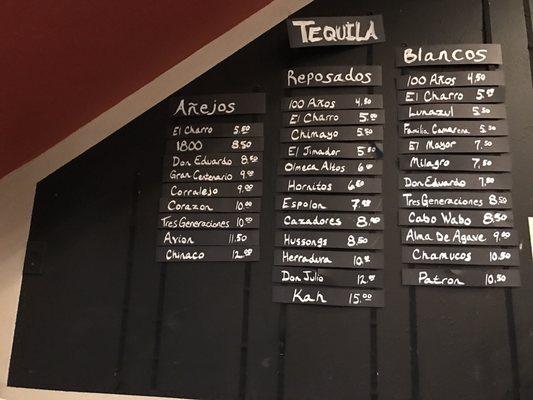 TEQUILA
Añejos
El Charro 5.50
1800 8.50
Don Eduardo 8.50
Gran Centenario 9.00
Corralejo 9.00
Corazon 10.00
Tres Generaciones 10.00
Avion 11.50
Chinaco 12.00
Reposados
100 Años 4.50
El Charro 5.00
Chimayo 5.50
El Jimador 5.50
Olmeca Altos 6.00
Hornitos 6.50
Espolon 7.00
Cazadores 8.00
Hussongs 8.50
Herradura 10.00
Don Julio 12.00
Kah 15.00
Blancos
100 Años 4.50
El Charro 5.00
Lunazul 5.50
Familia Camarena 5.50
El Mayor 7.50
Milagro 7.50
Don Eduardo 7.50
Tres Generaciones 8.50
Cabo Wabo 8.50
Alma De Agave 9.00
Chamucos 10.50
Patron 10.50